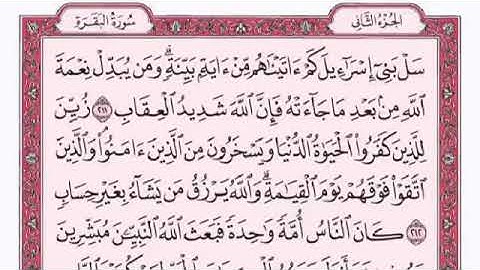 الجزء الثاني
سورة البقرة
سَلْ بَنِىٓ إِسْرَٰٓءِيلَ كَمْ ءَاتَيْنَٰهُم مِّنْ ءَايَةٍۭ بَيِّنَةٍۗ وَمَن يُبَدِّلْ نِعْمَةَ
ٱللَّهِ مِنۢ بَعْدِ مَا جَآءَتْهُ فَإِنَّ ٱللَّهَ شَدِيدُ ٱلْعِقَابِ ٢١١ زُيِّنَ
لِلَّذِينَ كَفَرُوا۟ ٱلْحَيَوٰةُ ٱلدُّنْيَا وَيَسْخَرُونَ مِنَ ٱلَّذِينَ ءَامَنُوا۟ۘ وَٱلَّذِينَ
ٱتَّقَوْا۟ فَوْقَهُمْ يَوْمَ ٱلْقِيَٰمَةِۗ وَٱللَّهُ يَرْزُقُ مَن يَشَآءُ بِغَيْرِ حِسَابٍ
٢١٢ كَانَ ٱلنَّاسُ أُمَّةً وَٰحِدَةً فَبَعَثَ ٱللَّهُ ٱلنَّبِيِّۦنَ مُبَشِّرِينَ